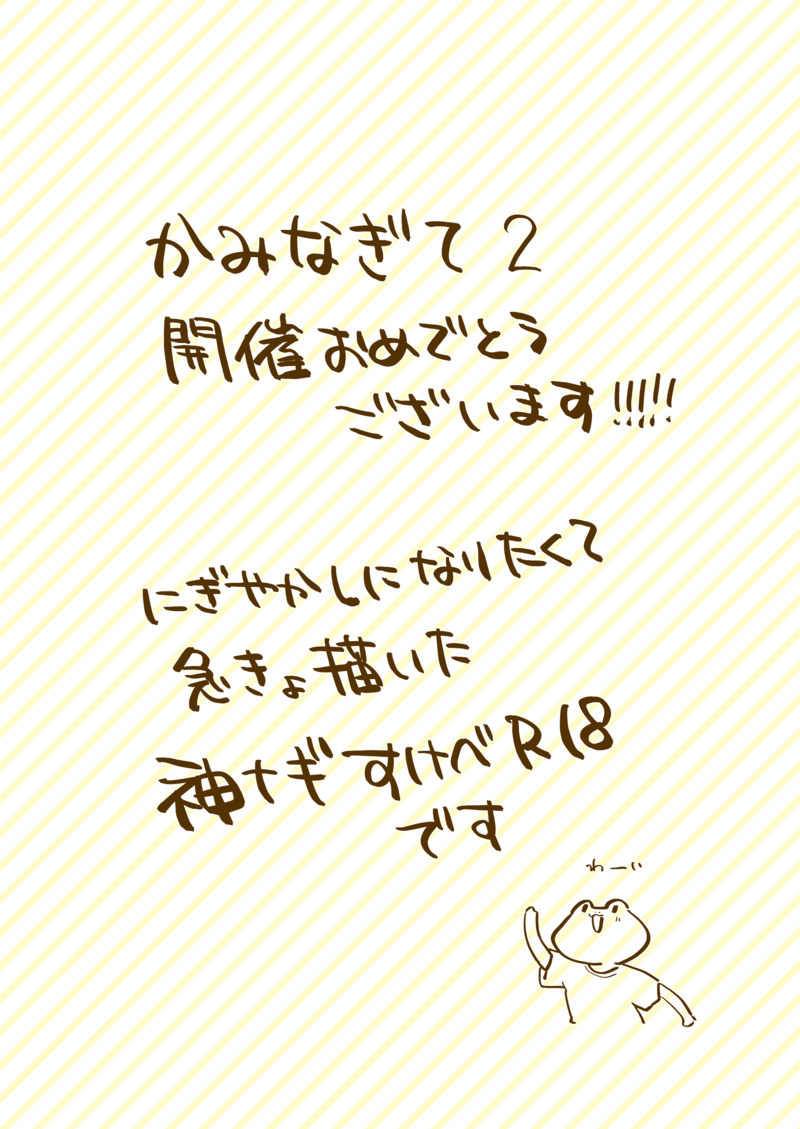 かみなぎて 2
開催おめでとう
ございます!!!!!
にぎやかしになりたくて
急きょ描いた
神ナギすけべR18
です
わーい